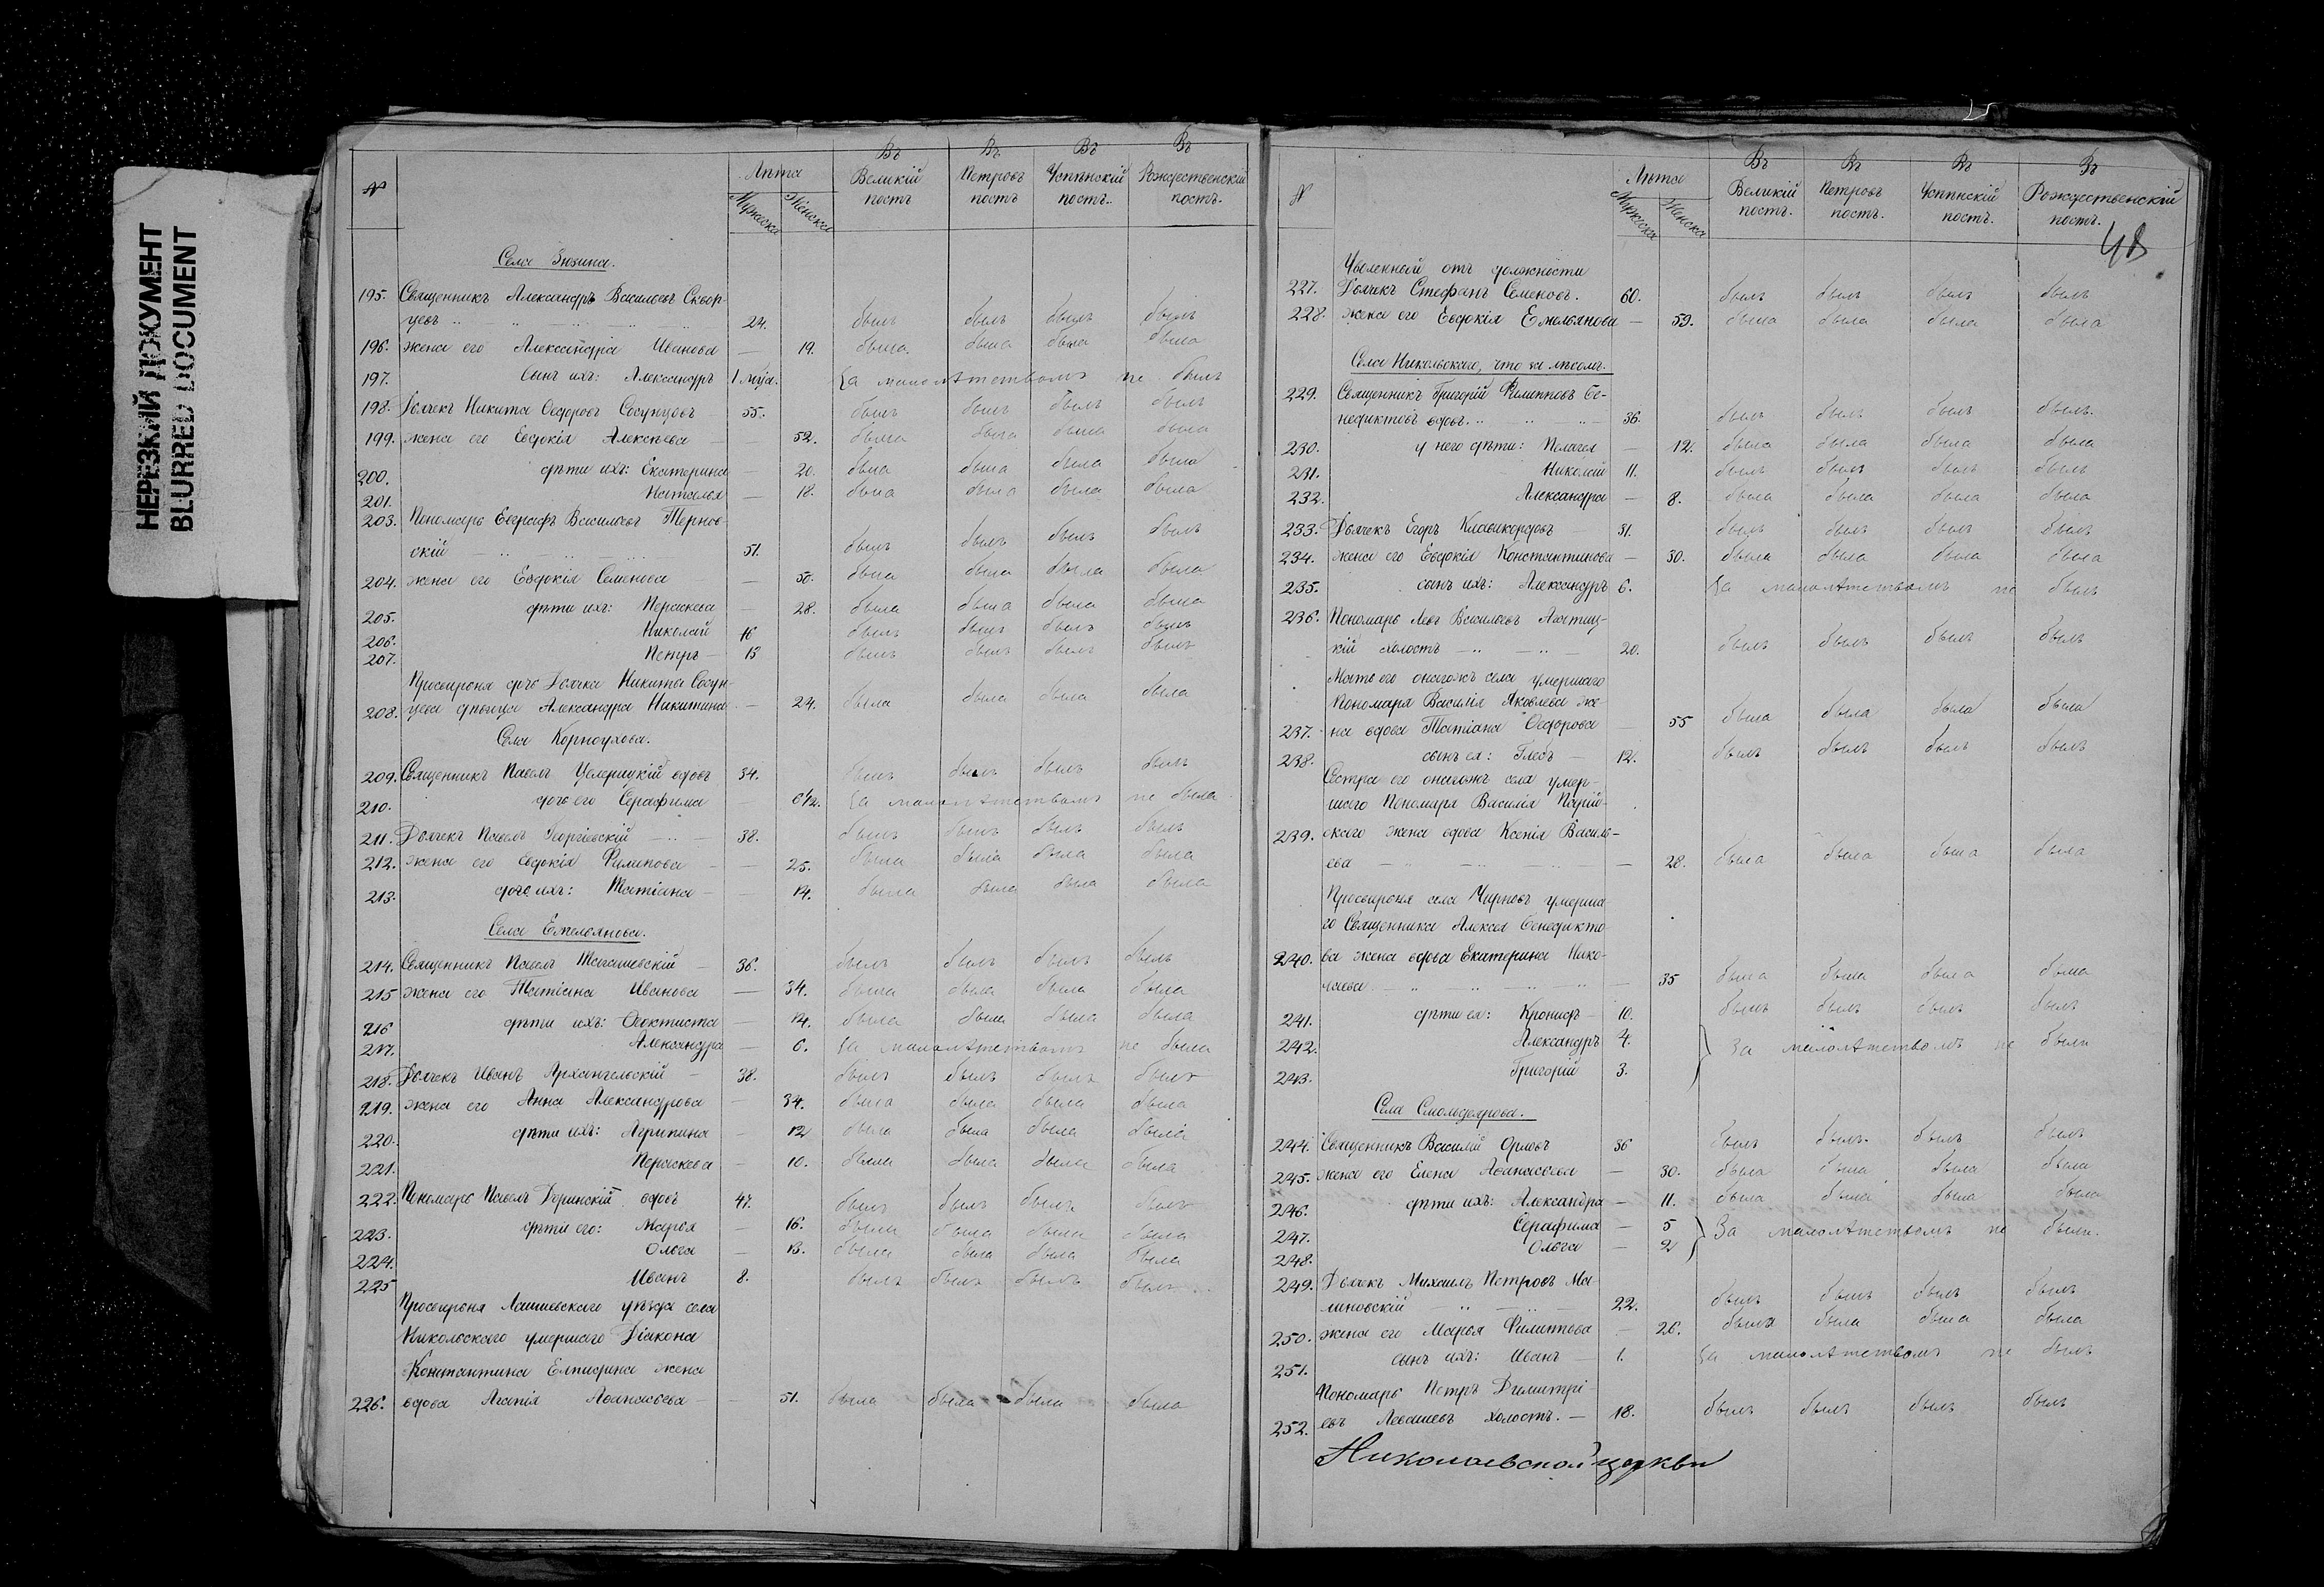 НЕРЕЗКИЙ ДОКУМЕНТ
BLURRED DOCUMENT
№ Лѣта Мужеска Женска Въ Великій постъ Въ Петровъ постъ Въ Успѣнскій постъ.. Въ Рождественскій постъ.
Села Зюзина.
195. Священникъ Александръ Васильевъ Сквор-
цевъ 24. былъ былъ былъ былъ
196. жена его Александра Иванова — 19. была. была была была
197. сынъ ихъ: Александръ 1 мѣс. За малолѣтствомъ не былъ
198. Дьячекъ Никита Ѳедоровъ Сосунцовъ 55. былъ былъ былъ былъ
199. жена его Евдокія Алексѣева — 52. была была была была
200. дѣти ихъ: Екатерина — 20. была была была была
201. Наталья — 18. была была была была
203. Пономарь Евграфъ Васильевъ Тернов-
скій 51. былъ былъ былъ былъ
204. жена его Евдокія Семенова — 50. была была была была
205. дѣти ихъ: Параскева — 28. была была была была
206. Николай 16 былъ былъ былъ былъ
207. Петръ — 13 былъ былъ былъ былъ
Просвирня дочь Дьячка Никиты Сосун-
208. цева дѣвица Александра Никитина — 24. была была была была
Села Корноухова.
209. Священникъ Павелъ вдовъ 34. былъ былъ былъ былъ
210. дочь его Серафима — За малолѣтствомъ не была
211. Дьячекъ Павелъ Георгіевскій 38. былъ былъ былъ былъ
212. жена его Евдокія Филипова — 25. была была была была
213. дочь ихъ: Татіана — 14. была была была была
Села Емельянова.
214. Священникъ Павелъ 36. былъ былъ былъ былъ
215 жена его Татіана Иванова — 34. была была была была
216 дѣти ихъ: Ѳеоктиста — 14. была была была была
217. Александра — 6. За малолѣтствомъ не была
218. Дьячекъ Иванъ Архангельскій — 38. былъ былъ былъ былъ
219. жена его Анна Александрова — 34. была была была была
220. дѣти ихъ: Агрипина — 12 была была была была
221. Параскева — 10. была была была была
222. Пономарь Павелъ вдовъ 47. былъ былъ былъ былъ
223. дѣти его: Марья — 16. была была была была
224. Ольга — 13. была была была была
225 Иванъ 8. былъ былъ былъ былъ
Просвирня Лаишевскаго уѣзда села
Никольскаго умершаго Діакона
Константина Елпидина жена
226. вдова Агапія Аѳанасьева — 51. была была была была
№ Лѣта Мужеска Женска Въ Великій постъ. Въ Петровъ постъ. Въ Успѣнскій постъ. Въ Рождественскій постъ.
48
Уволенный отъ должности
227. Дьячекъ Стефанъ Семеновъ. 60. былъ былъ былъ былъ
228. жена его Евдокія Емельянова — 59. была была была была
Села Никольскаго, что за лѣсомъ.
229. Священникъ Григорій Филипповъ Бе-
недиктовъ вдовъ. 36. былъ былъ былъ былъ.
230. у него дѣти: Пелагея — 12. была была была была
231. Николай 11. былъ былъ былъ былъ
232. Александра — 8. была была была была
233. Дьячекъ Егоръ Клавикордовъ 31. былъ былъ былъ былъ
234. жена его Евдокія Константинова — 30. была была была была
235. сынъ ихъ: Александръ 6. За малолѣтствомъ не былъ
236. Пономарь Левъ Васильевъ
кій холостъ 20. былъ былъ былъ былъ
Мать его онагожъ села умершаго
Пономаря Василія Яковлева же-
237. на вдова Татіана Ѳедорова 55 была была была была
238. сынъ ея: Глебъ — 12. былъ былъ былъ былъ
Сестра его онагожъ села умер-
шаго Пономаря Василія
239. скаго жена вдова Ксенія Василь-
ева — 28. была была была была
Просвирня села Чирповъ умерша-
го Священника Алексея Бенедикто-
240. ва жена вдова Екатерина Нико-
лаева — 35 была была была была
241. дѣти ея: Кронидъ — 10. былъ былъ былъ былъ
242. Александръ 4. За малолѣтствомъ не были
243. Григорій 3.
Села Смольдеярова.
244. Священникъ Василій Орловъ 36 былъ былъ. былъ былъ
245. жена его Елена Аѳанасьева — 30. была была была была
246. дѣти ихъ: Александра — 11. была была была была
247. Серафима — 5 За малолѣтствомъ не были.
248. Ольга — 2
249. Дьячекъ Михаилъ Петровъ Ма-
линовскій 22. былъ былъ былъ былъ
250. жена его Марья Филиппова — 26. была была была была
251. сынъ ихъ: Иванъ — 1. За малолѣтствомъ не былъ
Пономарь Петръ Димитрі-
252. евъ Левашевъ холостъ. — 18. былъ былъ былъ былъ
Николаевской церкви